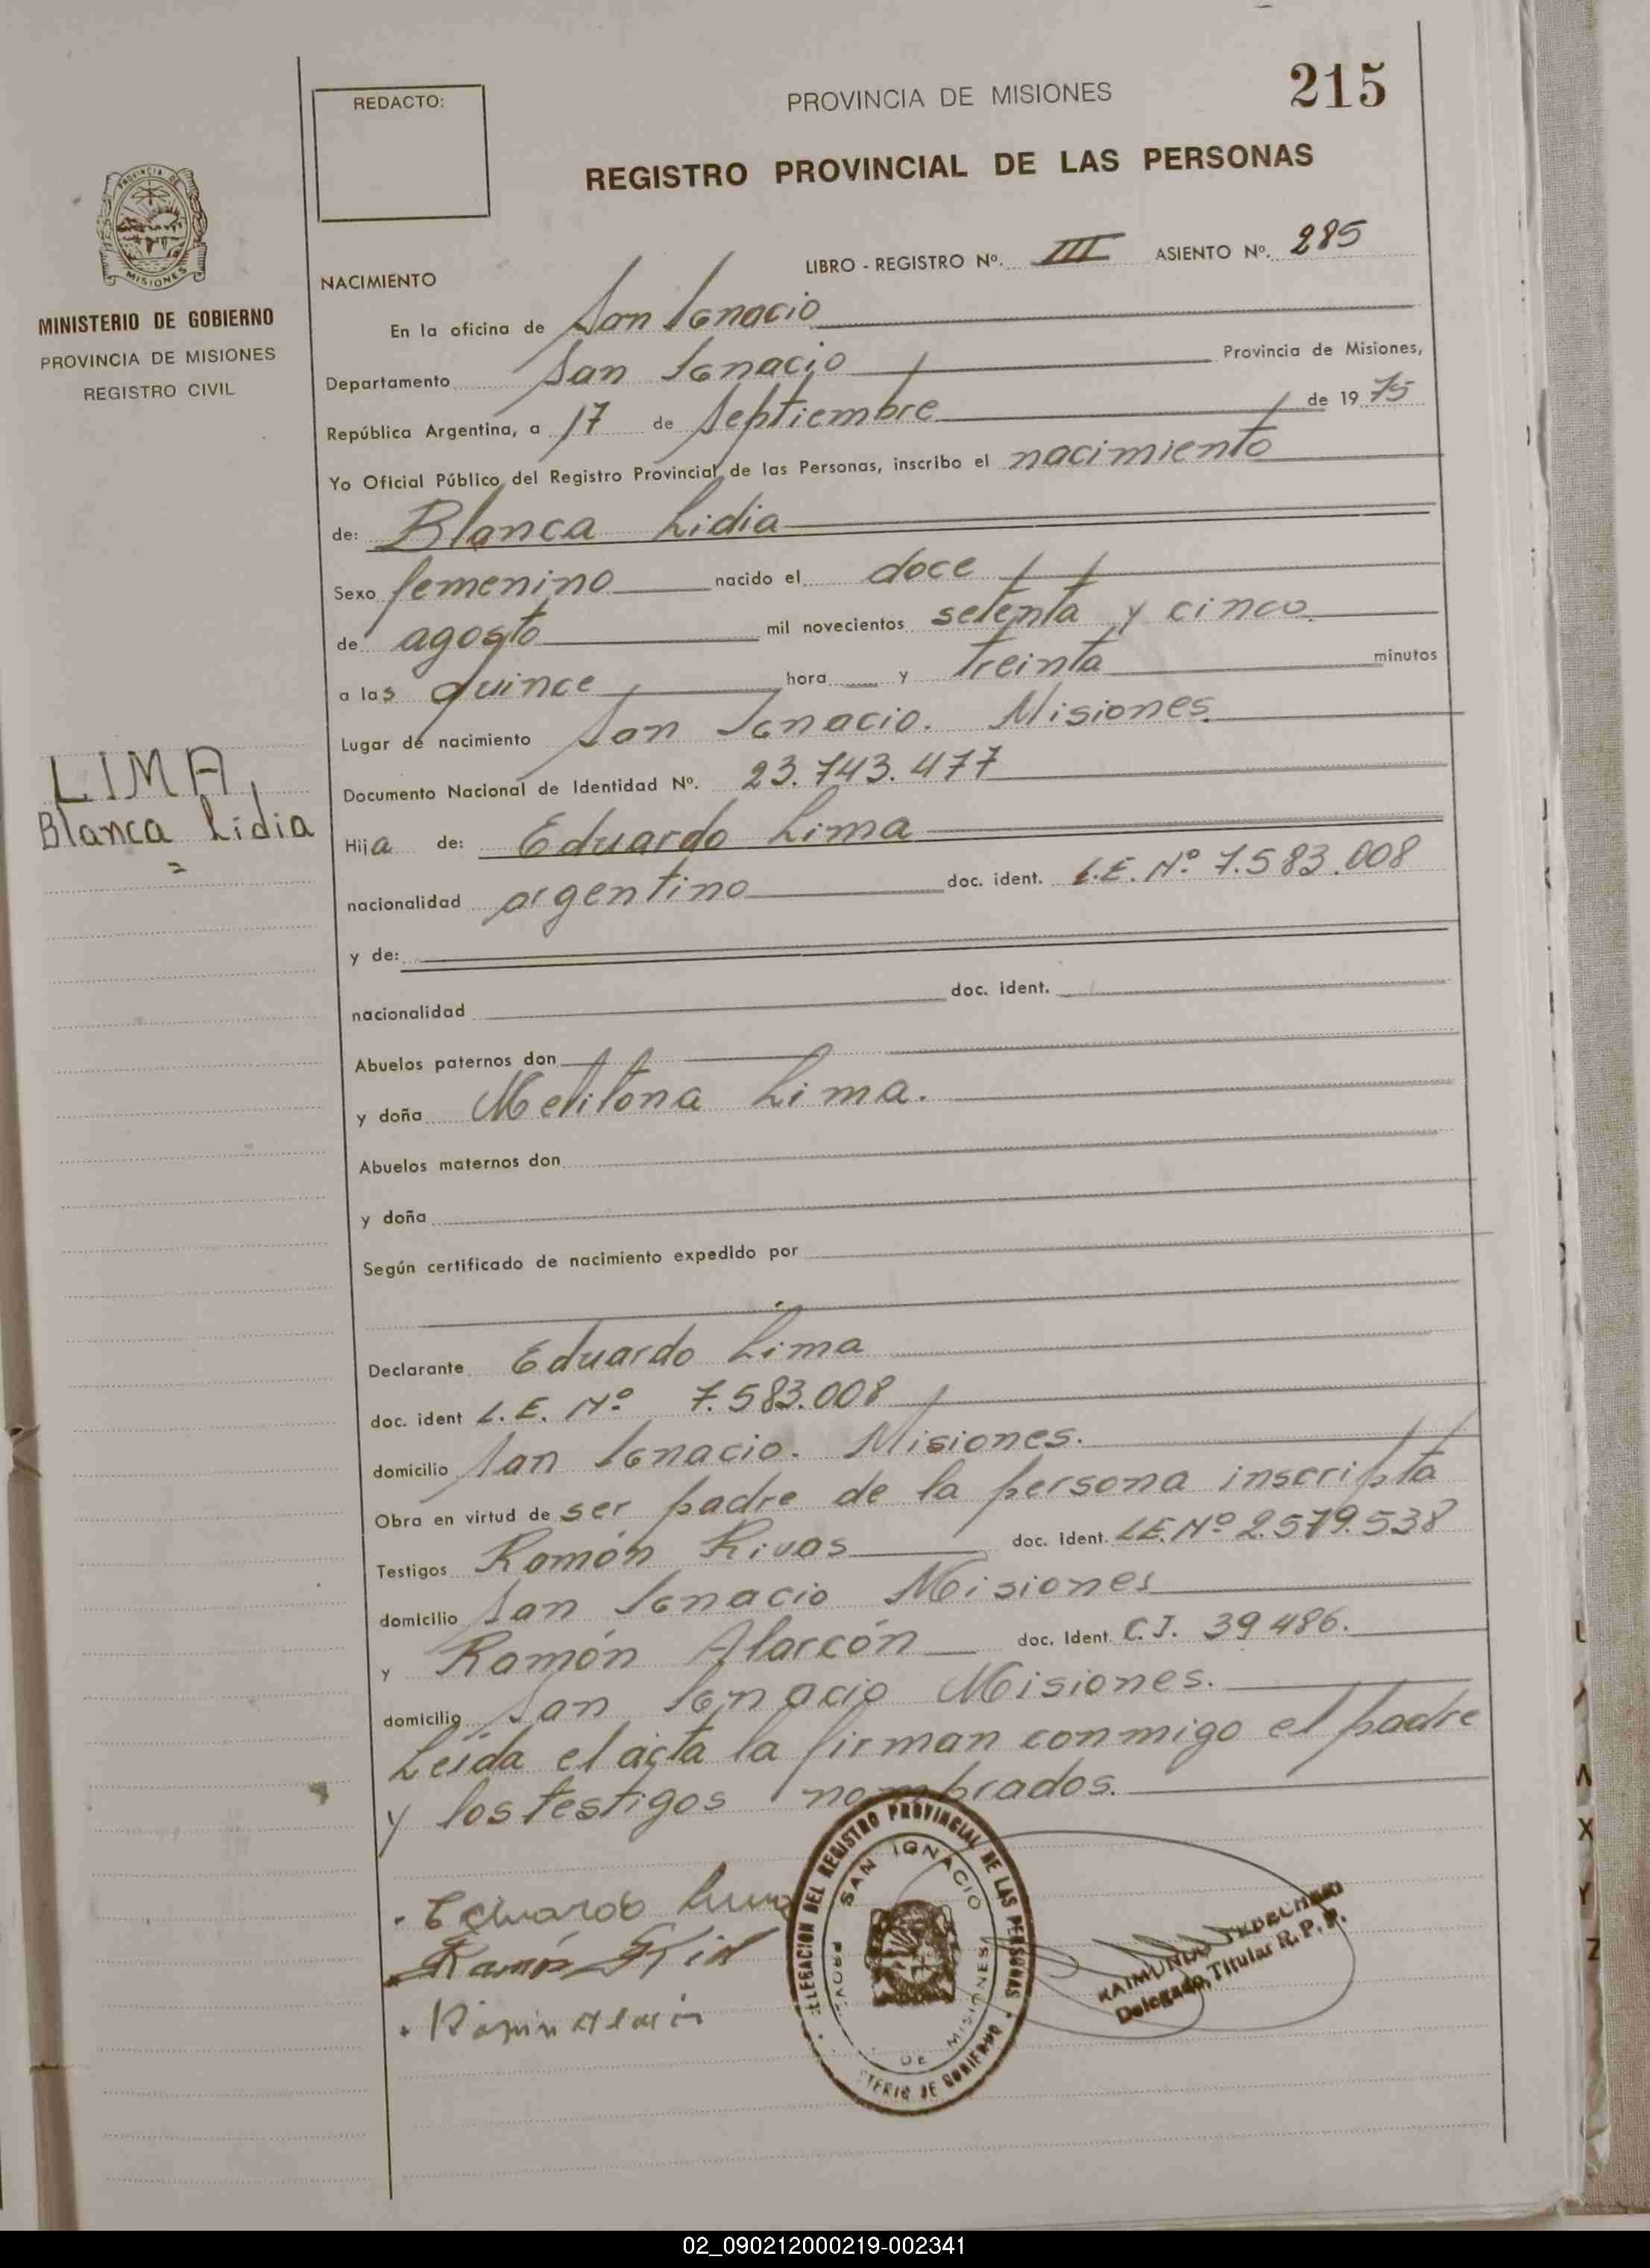 215
REDACTO:
PROVINCIA DE MISIONES
REGISTRO PROVINCIAL DE LAS PERSONAS
PROVINCIA DE
MISIONES
MINISTERIO DE GOBIERNO
PROVINCIA DE MISIONES
REGISTRO CIVIL
LIBRO - REGISTRO Nº. III ASIENTO Nº. 285
NACIMIENTO
En la oficina de San Ignacio
Departamento San Ignacio Provincia de Misiones,
República Argentina, a 17 de Septiembre de 1975
Yo Oficial Público del Registro Provincial de las Personas, inscribo el nacimiento
de: Blanca Lidia
Sexo femenino nacido el doce
de agosto mil novecientos setenta y cinco
a las quince hora y treinta minutos
Lugar de nacimiento San Ignacio. Misiones
Documento Nacional de Identidad Nº. 23.743.477
LIMA,
Blanca Lidia
Hija de: Eduardo Lima
nacionalidad argentino doc. ident. L.E. Nº 7.583.008
y de:
nacionalidad doc. ident.
Abuelos paternos don
y doña Melitona Lima.
Abuelos maternos don
y doña
Según certificado de nacimiento expedido por
Declarante Eduardo Lima
doc. ident L.E. Nº 7.583.008
domicilio San Ignacio. Misiones.
Obra en virtud de ser padre de la persona inscripta
Testigos Ramón Rivas doc. ident. L.E. Nº 2.579.538
domicilio San Ignacio Misiones
y Ramón Alarcón doc. Ident. C.I. 39486.
domicilio San Ignacio Misiones.
Leída el acta la firman conmigo el padre
y los testigos nombrados.
Eduardo Lima
Ramón
Ramón Alarcón
DELEGACION DEL REGISTRO PROVINCIAL DE LAS PERSONAS
SAN IGNACIO
PROV. DE MISIONES
MINISTERIO DE GOBIERNO
RAIMUNDO
Delegado Titular R. P. P.
X
Y
Z
02_090212000219-002341